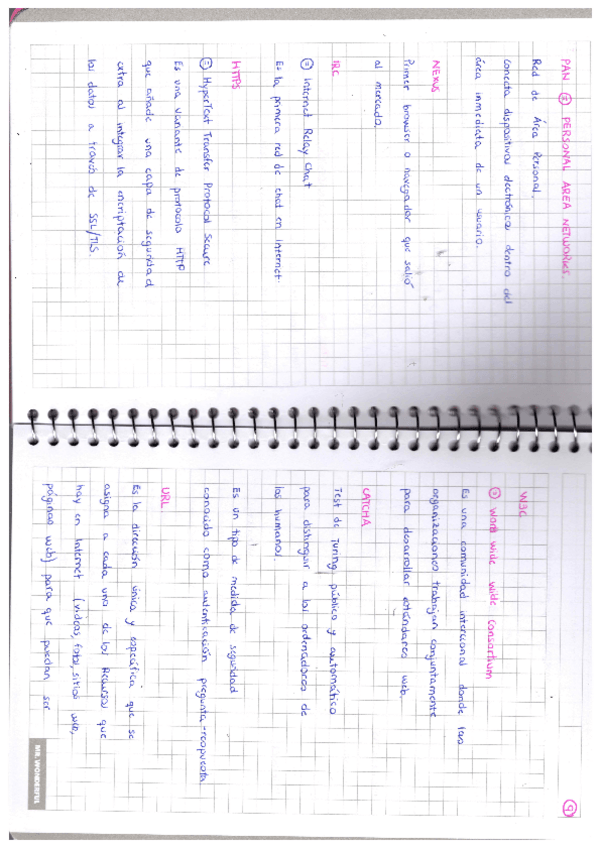 PAN = PERSONAL AREA NETWORKS.
Red de Área Personal.
conecta dispositivos electrónicos dentro del
área inmediata de un usuario.
NEXUS
Primer browser o navegador que salió
al mercado.
IRC
= Internet Relay Chat
Es la primera red de chat en Internet.
HTTPS
= HyperText Transfer Protocol Secure
Es una variante de protocolo HTTP
que añade una capa de seguridad
extra al integrar la encriptación de
los datos a través de SSL/TLS.
9
W3C
= Word wide wide consortium
Es una comunidad intercional donde las
organizaciones trabajan conjuntamente
para desarrollar estándares web.
CATCHA
Test de Turing público y automático
para distinguir a los ordenadores de
los humanos.
Es un tipo de medida de seguridad
conocido como autenticación pregunta-respuesta
URL
Es la dirección única y específica que se
asigna a cada uno de los Recursos que
hay en Internet (videos, fotos, sitios web,
páginas web) para que puedan ser
MR. WONDERFUL